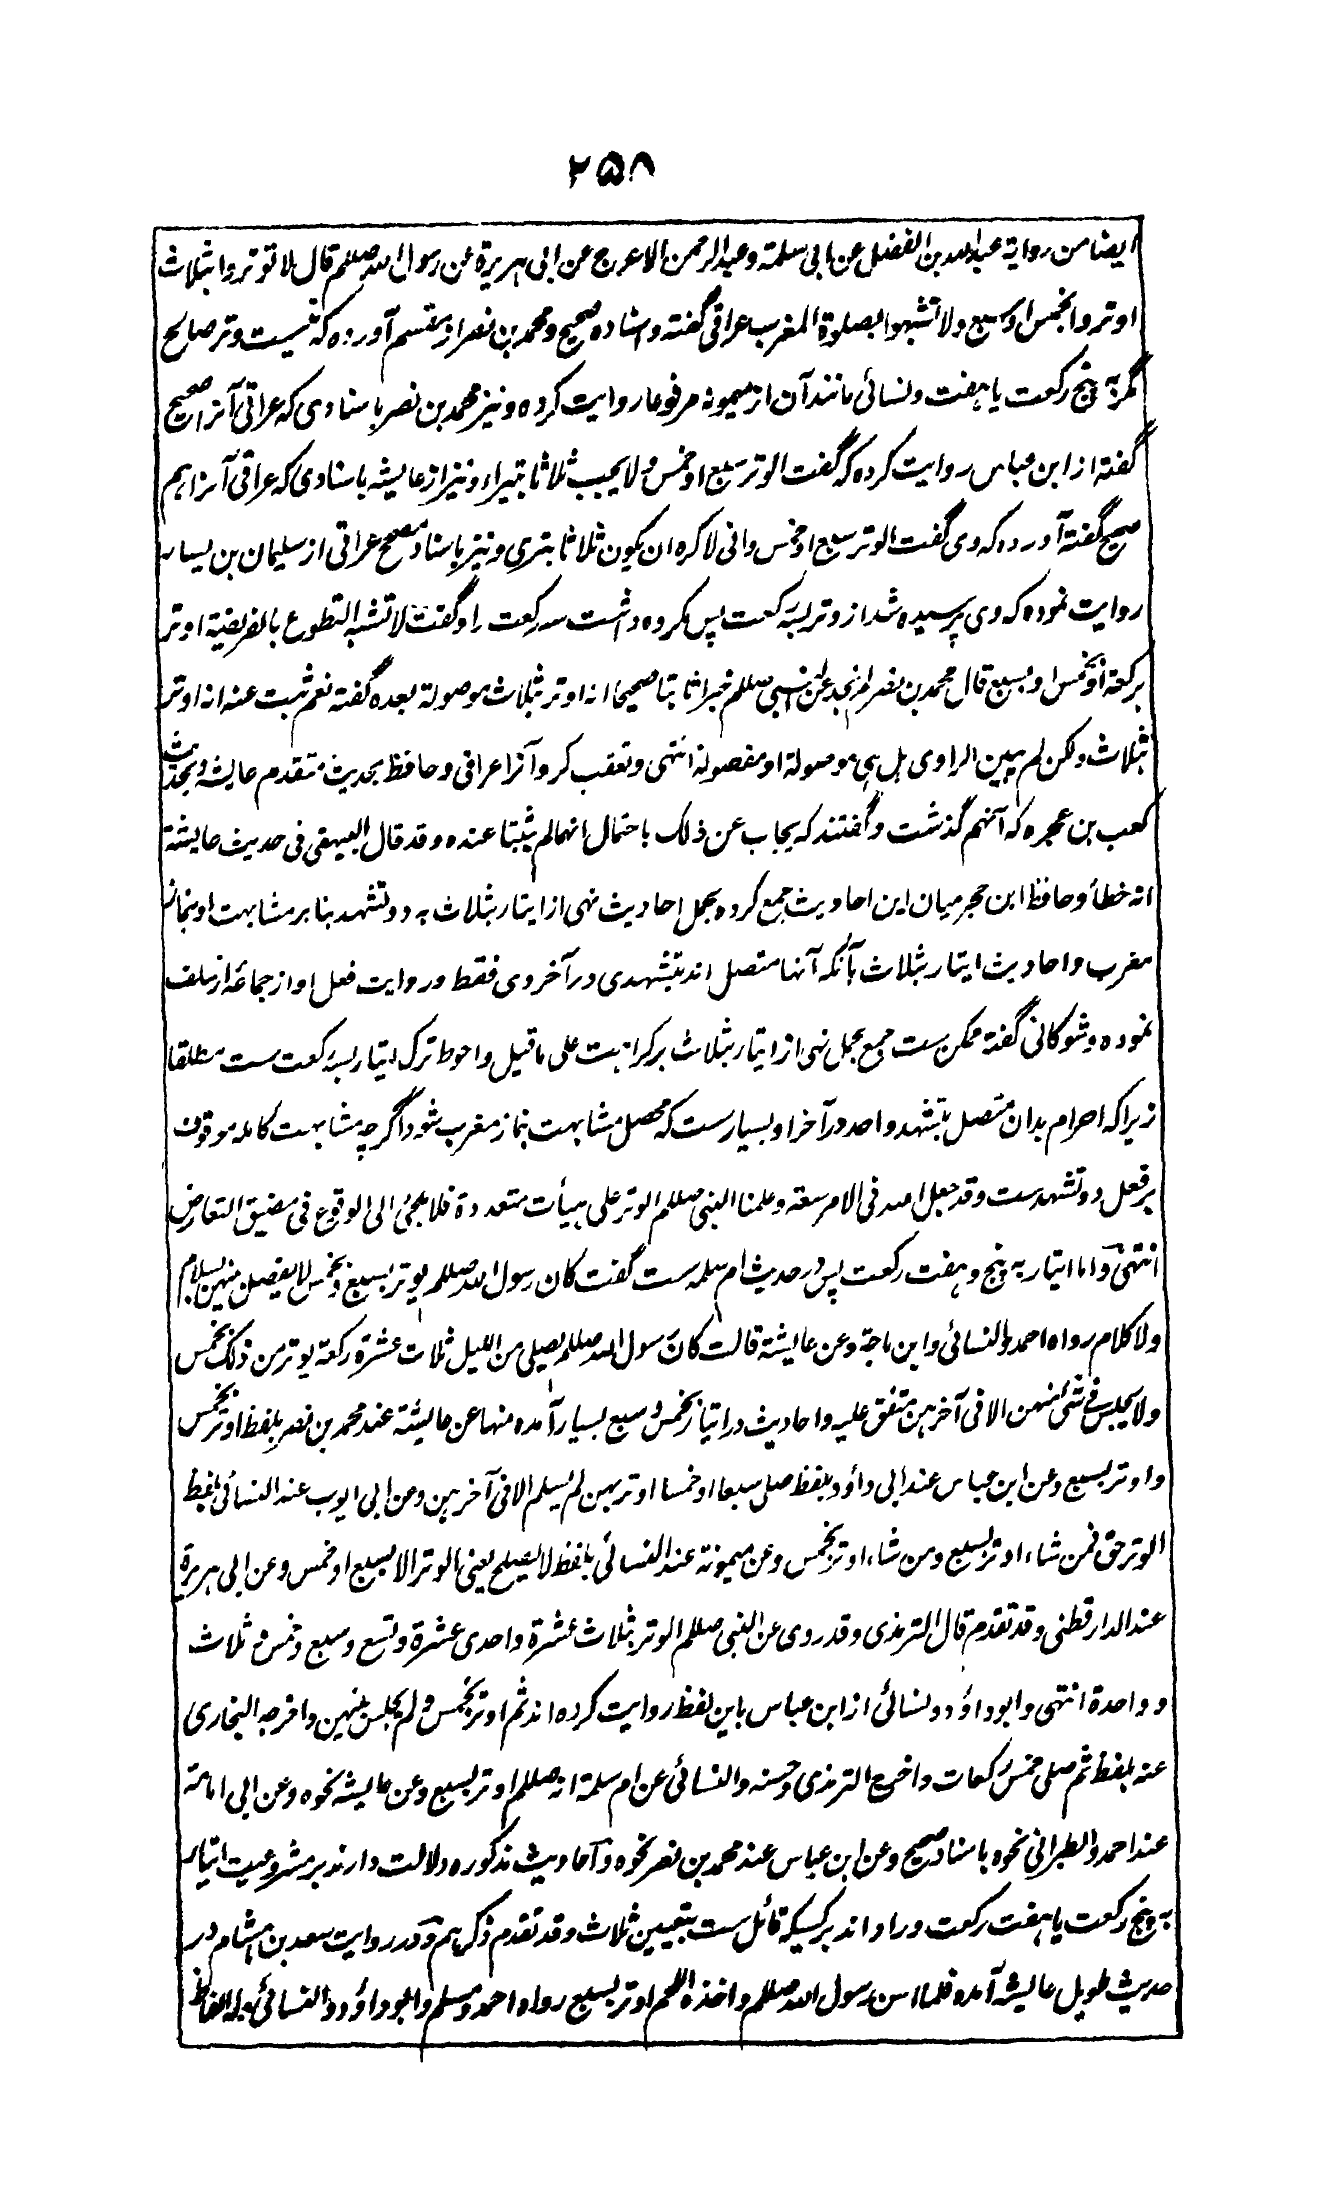 ۲۵۸
ایضا من روایة عبدالله بن الفضل عن ابی سلمة و عبدالرحمن الاعرج عن ابی هریرة عن رسول الله صللم قال لا توتروا بثلاث
اوتروا بخمس او سبع ولا تشبهوا بصلوة المغرب عراقی گفته و اسناده صحیح و محمد بن نصر از مقسم آورده که نیست وتر صالح
مگر به پنج رکعت یا هفت و نسائی مانند آن از میمونه مرفوعا روایت کرده و نیز محمد بن نصر باسنادی که عراقی آنرا صحیح
گفته از ابن عباس روایت کرده که گفت الوتر سبع او خمس ولا یحب ثلاثا بتیراء و نیز از عایشه باسنادی که عراقی آنرا هم
صحیح گفته آورده که وی گفت الوتر سبع او خمس وانی لاکره ان یکون ثلاثا بتری و نیز باسناد مصحح عراقی از سلیمان بن یسار
روایت نموده که وی پرسیده شد از وتر بسه رکعت پس مکروه داشت سه رکعت را و گفت لا تشبه التطوع بالفریضة اوتر
برکعة او بخمس او بسبع قال محمد بن نصر لم نجد عن النبی صللم خبرا ثابتا صحیحا انه اوتر بثلاث موصولة بعده گفته نعم ثبت عنه انه اوتر
بثلاث ولکن لم یبین الراوی بل هی موصولة او مفصولة انتهی و تعقب کرد آنرا عراقی و حافظ بحدیث متقدم عایشه و بحدیث
کعب بن عجره که آنهم گذشت و گفتند که یجاب عن ذلک باحتمال انهما لم یثبتا عنده و قد قال البیهقی فی حدیث عایشة
انه خطأ و حافظ ابن حجر میان این احادیث جمع کرده بحمل احادیث نهی از ایتار بثلاث به دو تشهد بنا بر مشابهت او بنماز
مغرب و احادیث ایتار بثلاث بآنکه آنها متصل اند بتشهدی در آخر وی فقط و روایت فعل او از جماعه از سلف
نموده و شوکانی گفته ممکن ست جمع بحمل نهی از ایتار بثلاث بر کراهت علی ما قیل و احوط ترک ایتار بسه رکعت ست مطلقا
زیرا که احرام بدان متصل بتشهد واحد در آخر او بسیارست که محصل مشابهت بنماز مغرب شود اگرچه مشابهت کامله موقوف
بر فعل دو تشهدست و قد جعل الله فی الامر سعة و علمنا النبی صللم الوتر علی هیأت متعددة فلا ملجئ الی الوقوع فی مضیق التعارض
انتهی و اما ایتار به پنج و هفت رکعت پس در حدیث ام سلمه ست گفت کان رسول الله صللم یوتر بسبع و بخمس لا یفصل بینهن بسلام
ولا کلام رواه احمد والنسائی وابن ماجة و عن عایشة قالت کان رسول الله صللم یصلی من اللیل ثلاث عشرة رکعة یوتر من ذلک بخمس
ولا یجلس فی شیٔ منهن الا فی آخرهن متفق علیه و احادیث در ایتار بخمس و سبع بسیار آمده منها عن عایشة عند محمد بن نصر بلفظ اوتر بخمس
واوتر بسبع و عن ابن عباس عند ابی داؤد بلفظ صلی سبعا او خمسا اوتر بهن لم یسلم الا فی آخرهن و من ابی ایوب عند النسائی بلفظ
الوتر حق فمن شاء اوتر بسبع و من شاء اوتر بخمس و عن میمونة عند النسائی بلفظ لا یصلح یعنی الوتر الا بسبع او خمس و عن ابی هریرة
عند الدارقطنی و قد تقدم قال الترمذی و قد روی عن النبی صللم الوتر بثلاث عشرة واحدی عشرة و تسع و سبع و خمس و ثلاث
و واحدة انتهی و ابوداؤد و نسائی از ابن عباس باین لفظ روایت کرده اند ثم اوتر بخمس و لم یجلس بینهن واخرجه البخاری
عنه بلفظ ثم صلی خمس رکعات و اخرج الترمذی و حسنه والنسائی عن ام سلمة انه صللم اوتر بسبع و عن عایشه نحوه و عن ابی امامة
عند احمد والطبرانی نحوه باسناد صحیح و عن ابن عباس عند محمد بن نصر نحوه و احادیث مذکوره دلالت دارند بر مشروعیت ایتار
به پنج رکعت یا هفت رکعت و راد اند بر کسیکه قائل ست بتعیین ثلاث و قد تقدم ذکرهم و در روایت سعد بن هشام در
حدیث طویل عایشه آمده فلما اسن رسول الله صللم واخذه اللحم اوتر بسبع رواه احمد و مسلم وابوداؤد والنسائی وله الفاظ